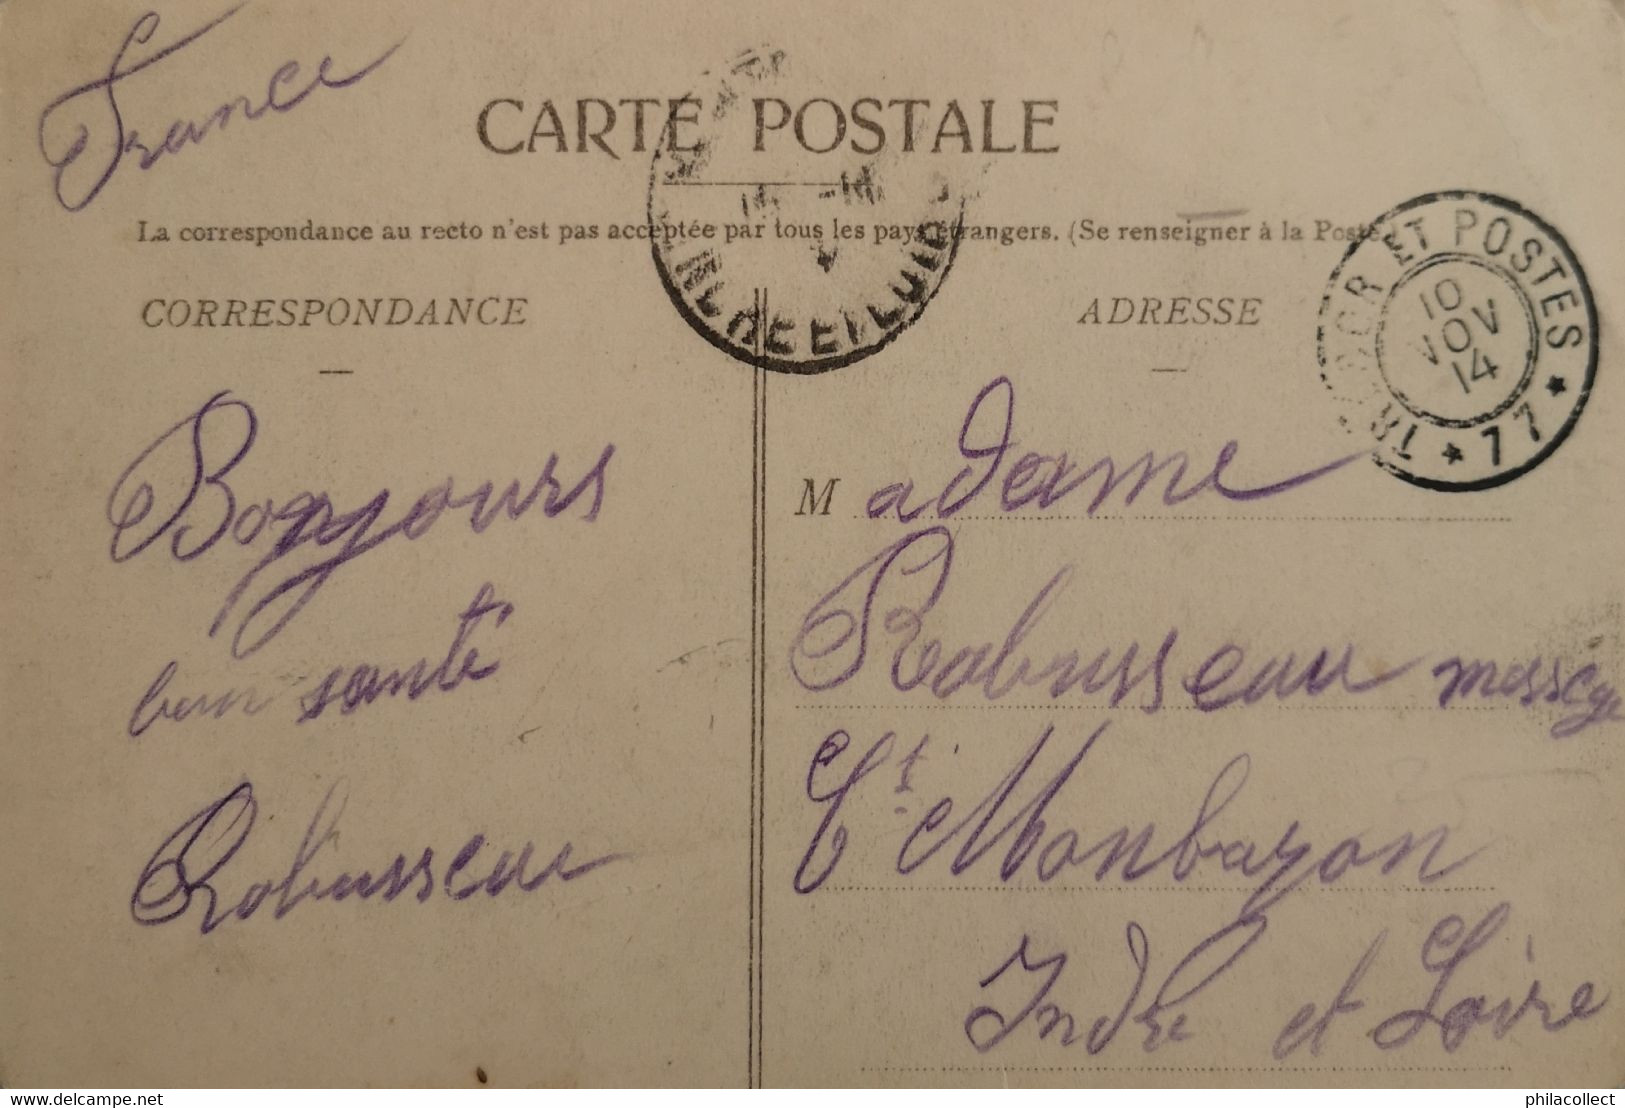 France
CARTE POSTALE
La correspondance au recto n'est pas acceptée par tous les pays étrangers. (Se renseigner à la Poste
CORRESPONDANCE
ADRESSE
TRESOR ET POSTES
10
NOV
14
* 77 *
INDRE ET LOIRE
Bonjours
bon santé
Robusseau
Madame
Rabusseau
Ct Monbazon
Indre et Loire
www.delcampe.net
philacollect